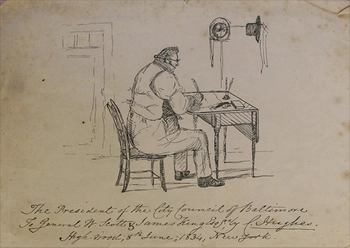 The President of the City Council of Baltimore
To General W. Scott & James King Esqrs by C. Hughes.
High Wood, 8th June, 1834, New York